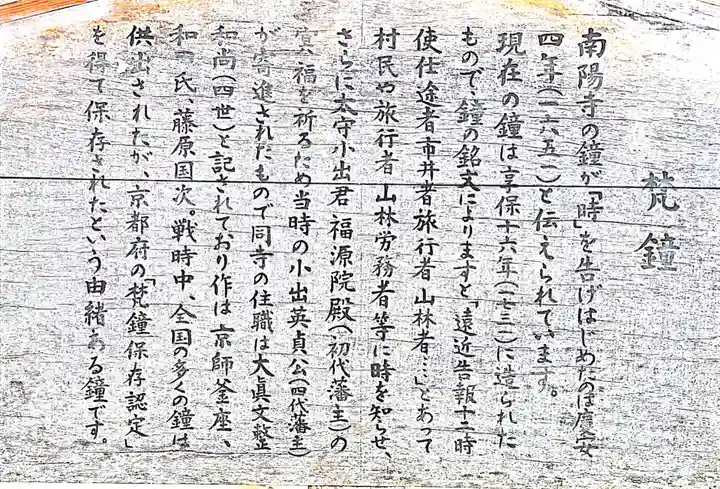 梵鐘
南陽寺の鐘が「時」を告げはじめたのは慶安
四年(一六五一)と伝えられています。
現在の鐘は享保十六年(一七三一)に造られた
もので、鐘の銘文によりますと「遠近告報十二時
使仕途者市井者旅行者山林者…」とあって
村民や旅行者、山林労務者等に時を知らせ、
さらに太守小出君福源院殿(初代藩主)の
冥福を祈るため当時の小出英貞公(四代藩主)
が寄進されたもので同寺の住職は大眞文整
和尚(四世)と記されており作は京師釜座、
和田氏、藤原国次。戦時中、全国の多くの鐘は
供出されたが、京都府の「梵鐘保存認定」
を得て保存されたという由緒ある鐘です。